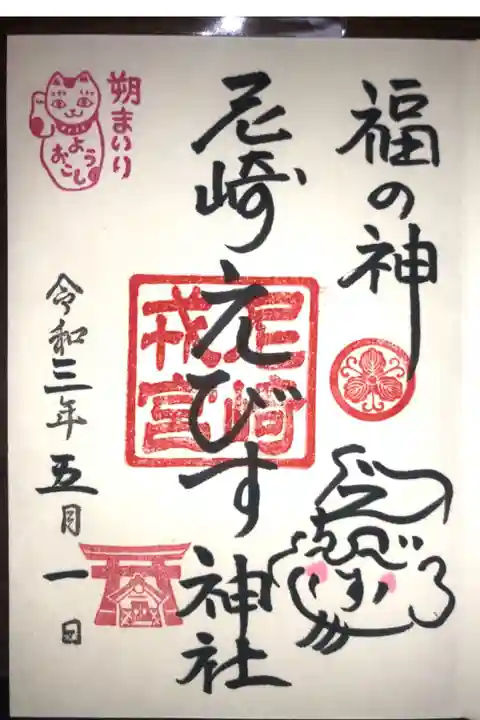 福の神
尼崎えびす神社
尼崎
戎宮
朔まいり
ようおこし
令和三年五月一日